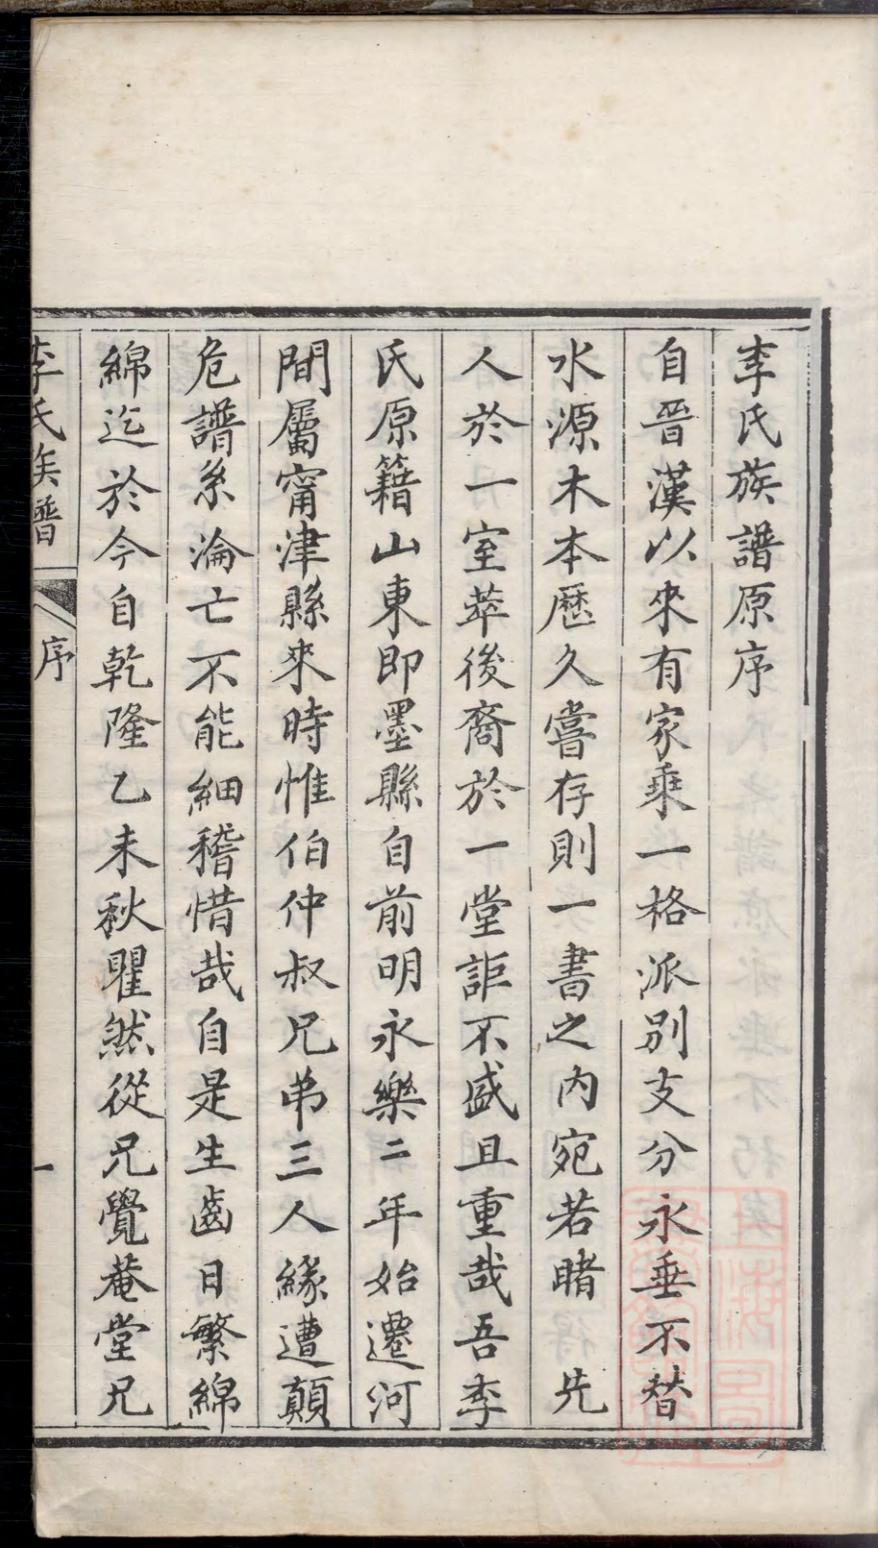 李氏族譜原序
自晉漢以來有家乘一格派別支分永垂不替
水源木本歷久嘗存則一書之内宛若睹先
人於一室萃後裔於一堂詎不盛且重哉吾李
氏原籍山東即墨縣自前明永樂二年始遷河
間屬甯津縣來時惟伯仲叔兄弟三人緣遭顛
危譜系淪亡不能細稽惜哉自是生齒日繁綿
綿迄於今自乾隆乙未秋瞿然從兄覺菴堂兄
李氏族譜
序
一